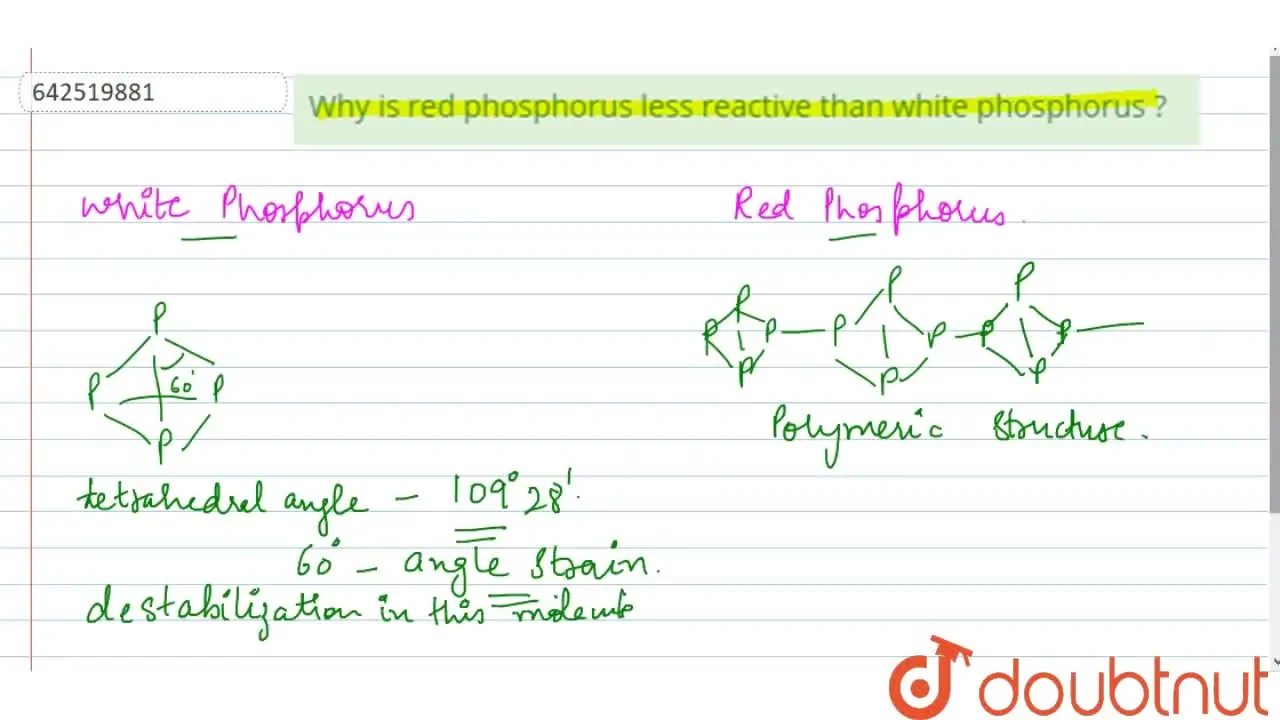 642519881
Why is red phosphorus less reactive than white phosphorus ?
White Phosphorus
Red Phosphorus.
P
P 60° P
P
P P P
P P P P P P
P P P
Polymeric Structure.
tetrahedral angle - 109° 28'.
60° - angle strain.
destabilization in this
doubtnut